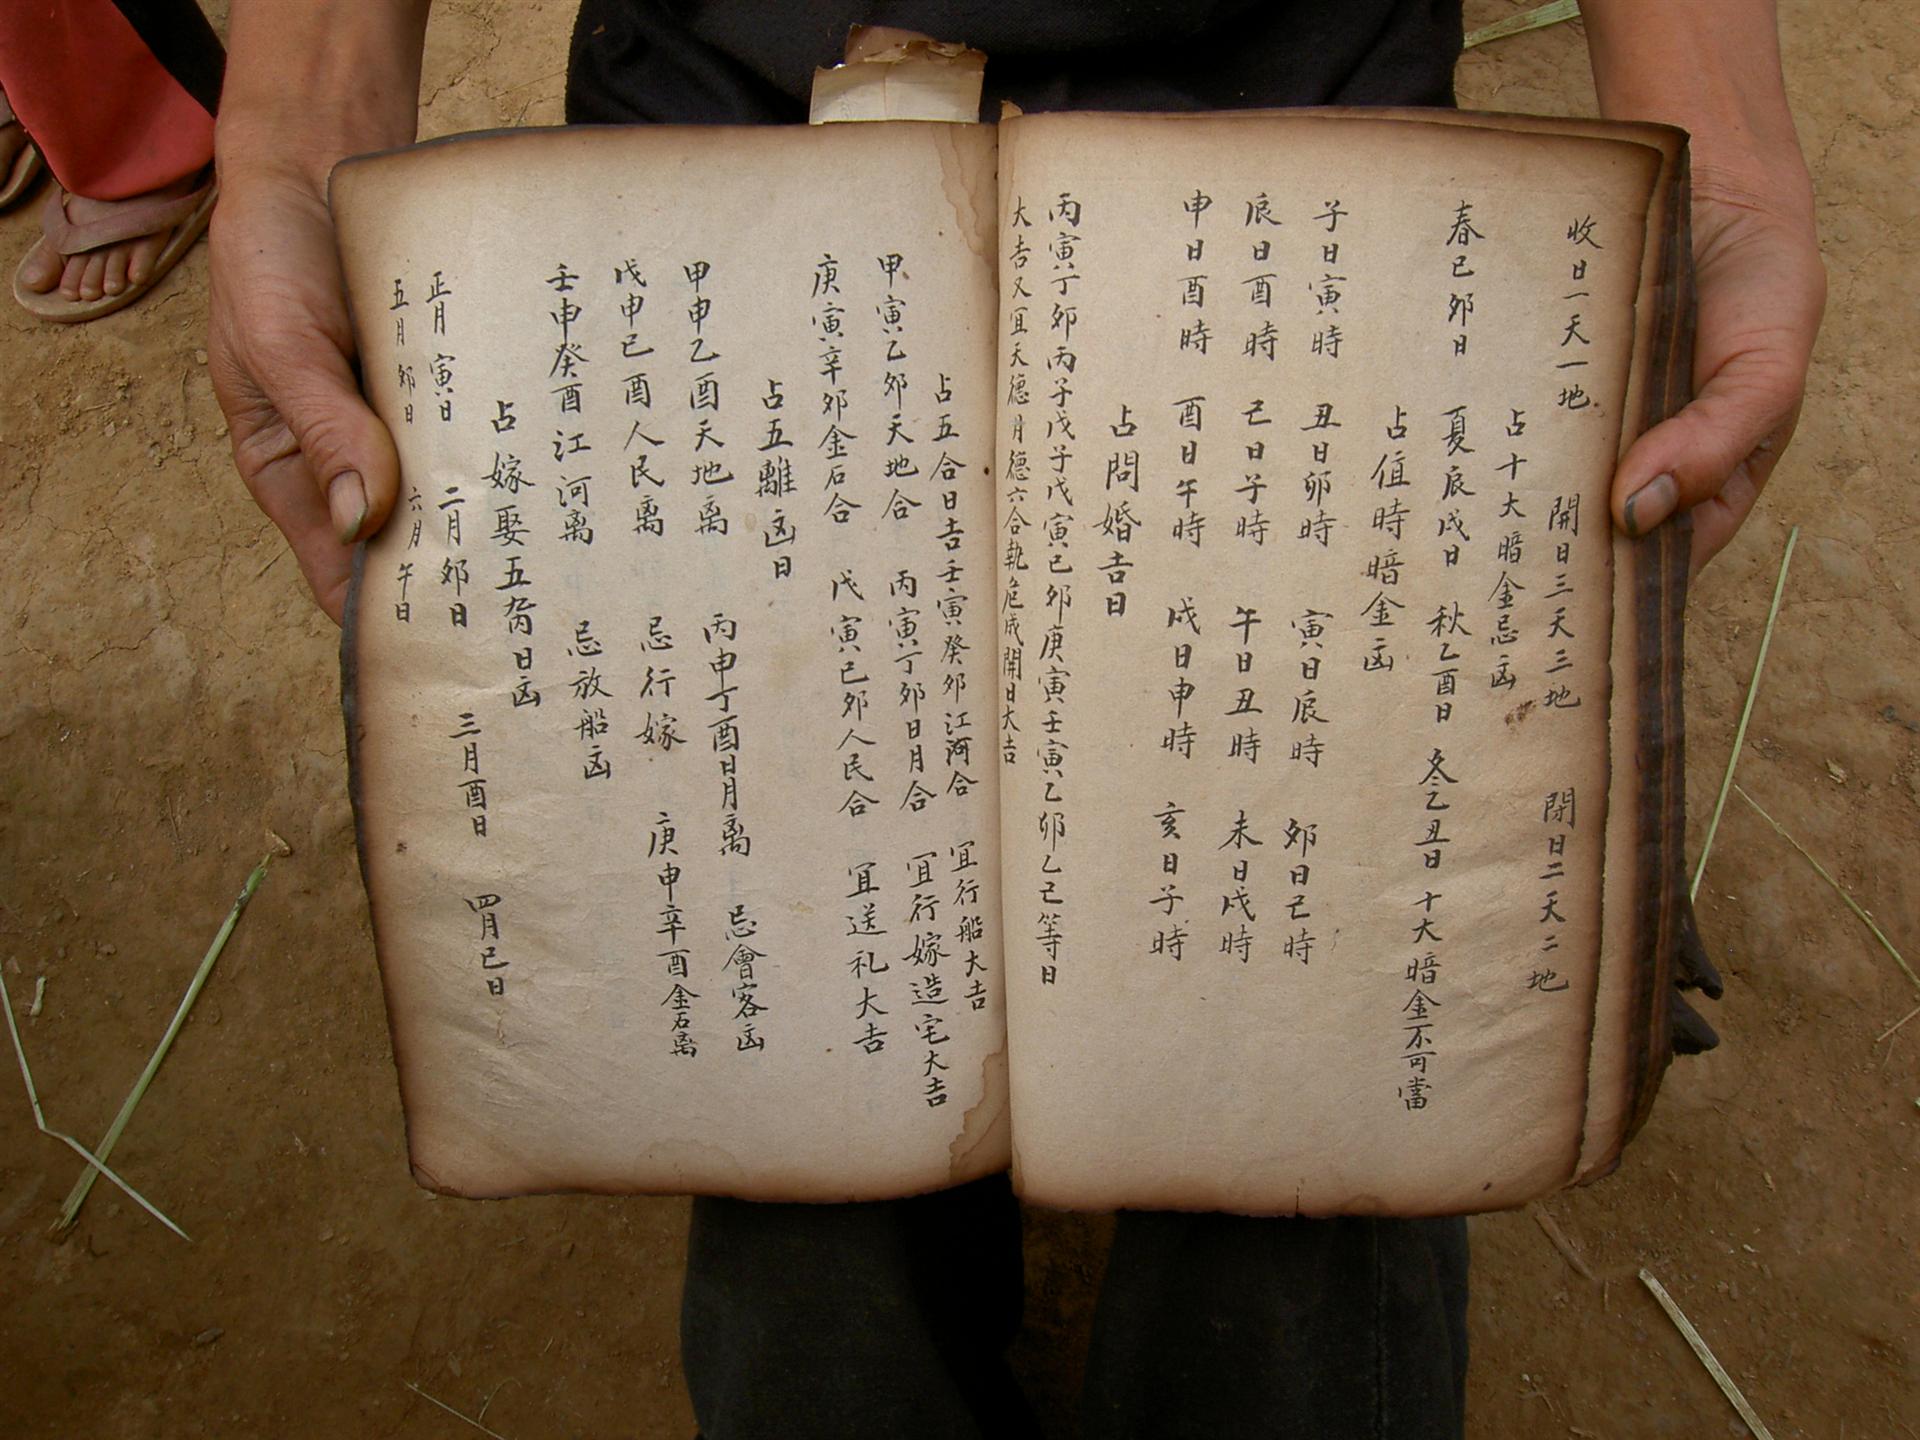 收日一天一地 開日三天三地 閉日二天二地
占十大暗金忌凶
春巳卯日 夏辰戌日 秋乙酉日 冬乙丑日 十大暗金不可當
占值時暗金凶
子日寅時 丑日卯時 寅日辰時 卯日巳時
辰日酉時 巳日子時 午日丑時 未日戌時
申日酉時 酉日午時 戌日申時 亥日子時
占問婚吉日
丙寅丁卯丙子戊子戊寅己卯庚寅壬寅乙卯乙巳等日
大吉又宜天德月德六合執危成開日大吉
占五合日吉壬寅癸卯江河合 宜行船大吉
甲寅乙卯天地合 丙寅丁卯日月合 宜行嫁造宅大吉
庚寅辛卯金石合 戊寅己卯人民合 宜送礼大吉
占五離凶日
甲申乙酉天地离 丙申丁酉日月离 忌會客凶
戊申己酉人民离 忌行嫁 庚申辛酉金石离
壬申癸酉江河离 忌放船凶
占嫁娶五日凶
正月寅日 二月卯日 三月酉日 四月巳日
五月卯日 六月午日